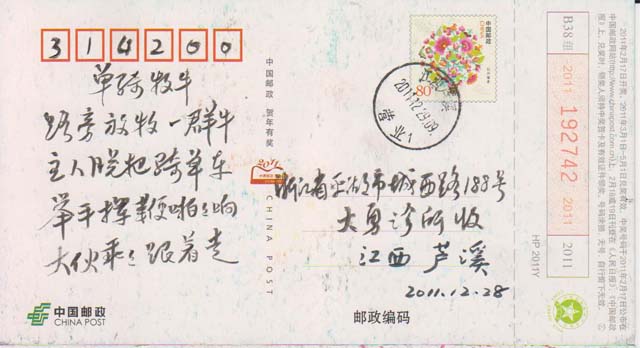 314200
单骑牧牛
路旁放牧一群牛
主人脱把骑单车
举手挥鞭啪々响
大伙乖々跟着走
中国邮政
CHINA POST
中国邮政 贺年有奖
2011
CHINA POST
中国邮政
CHINA
80
2011.12.29.09
浙江省平湖市城西路188号
大勇诊所收
江西 芦溪
2011.12.28
邮政编码
HP 2011Y
B38组
2011
192742
2011
2011